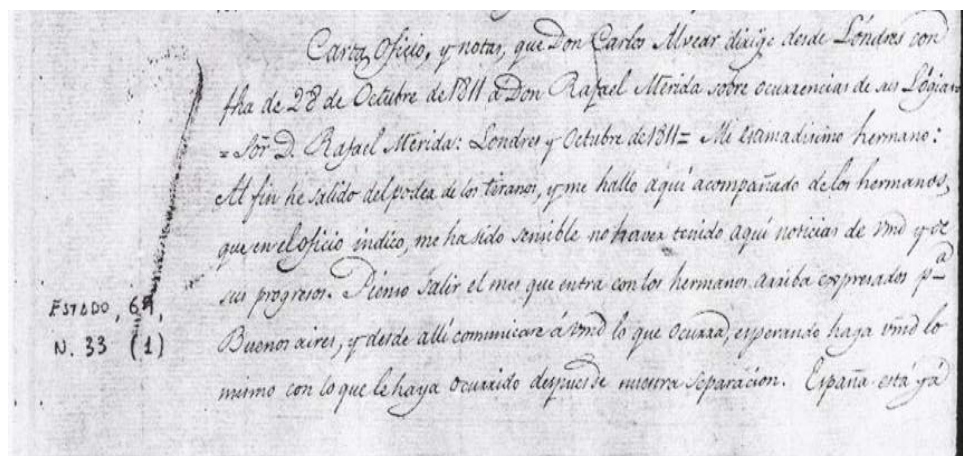 Carta, Oficio, y notas, que Don Carlos Alvear dirige desde Lóndres con
fha de 28 de Octubre de 1811 a Don Rafael Mérida sobre ocurrencias de sus Lógias=
= Sõr D. Rafael Mérida: Londres y Octubre de 1811= Mi esamadisimo hermano:
Al fin he salido del poder de los tiranos, y me hallo aquí acompañado de los hermanos,
que en el oficio indico, me ha sido sensible no haver tenido aquí noticias de vmd y de
sus progresos. Pienso salir el mes que entra con los hermanos arriba expresados pª
Buenos aires, y desde allí comunicaré á vmd lo que ocurra, esperando haga vmd lo
mismo con lo que le haya ocurrido despues de nuestra separacion. España está ya
ESTADO, 69,
N. 33 (1)